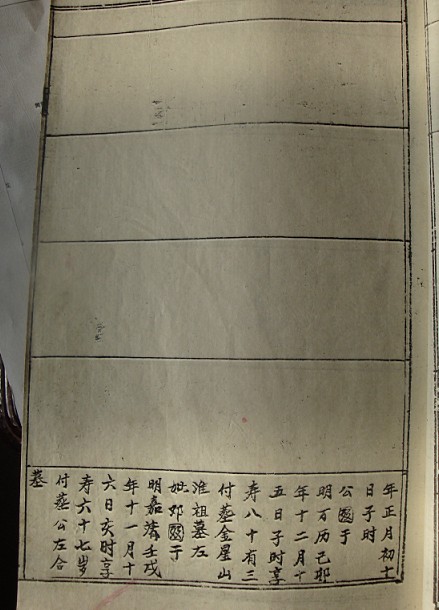 年正月初十
日子时
公殁于
明万历己卯
年十二月十
五日子时享
寿八十有三
付葬金星山
淮祖墓左
妣邓殁于
明嘉靖壬戌
年十一月十
六日亥时享
寿六十七岁
付葬公左合
墓